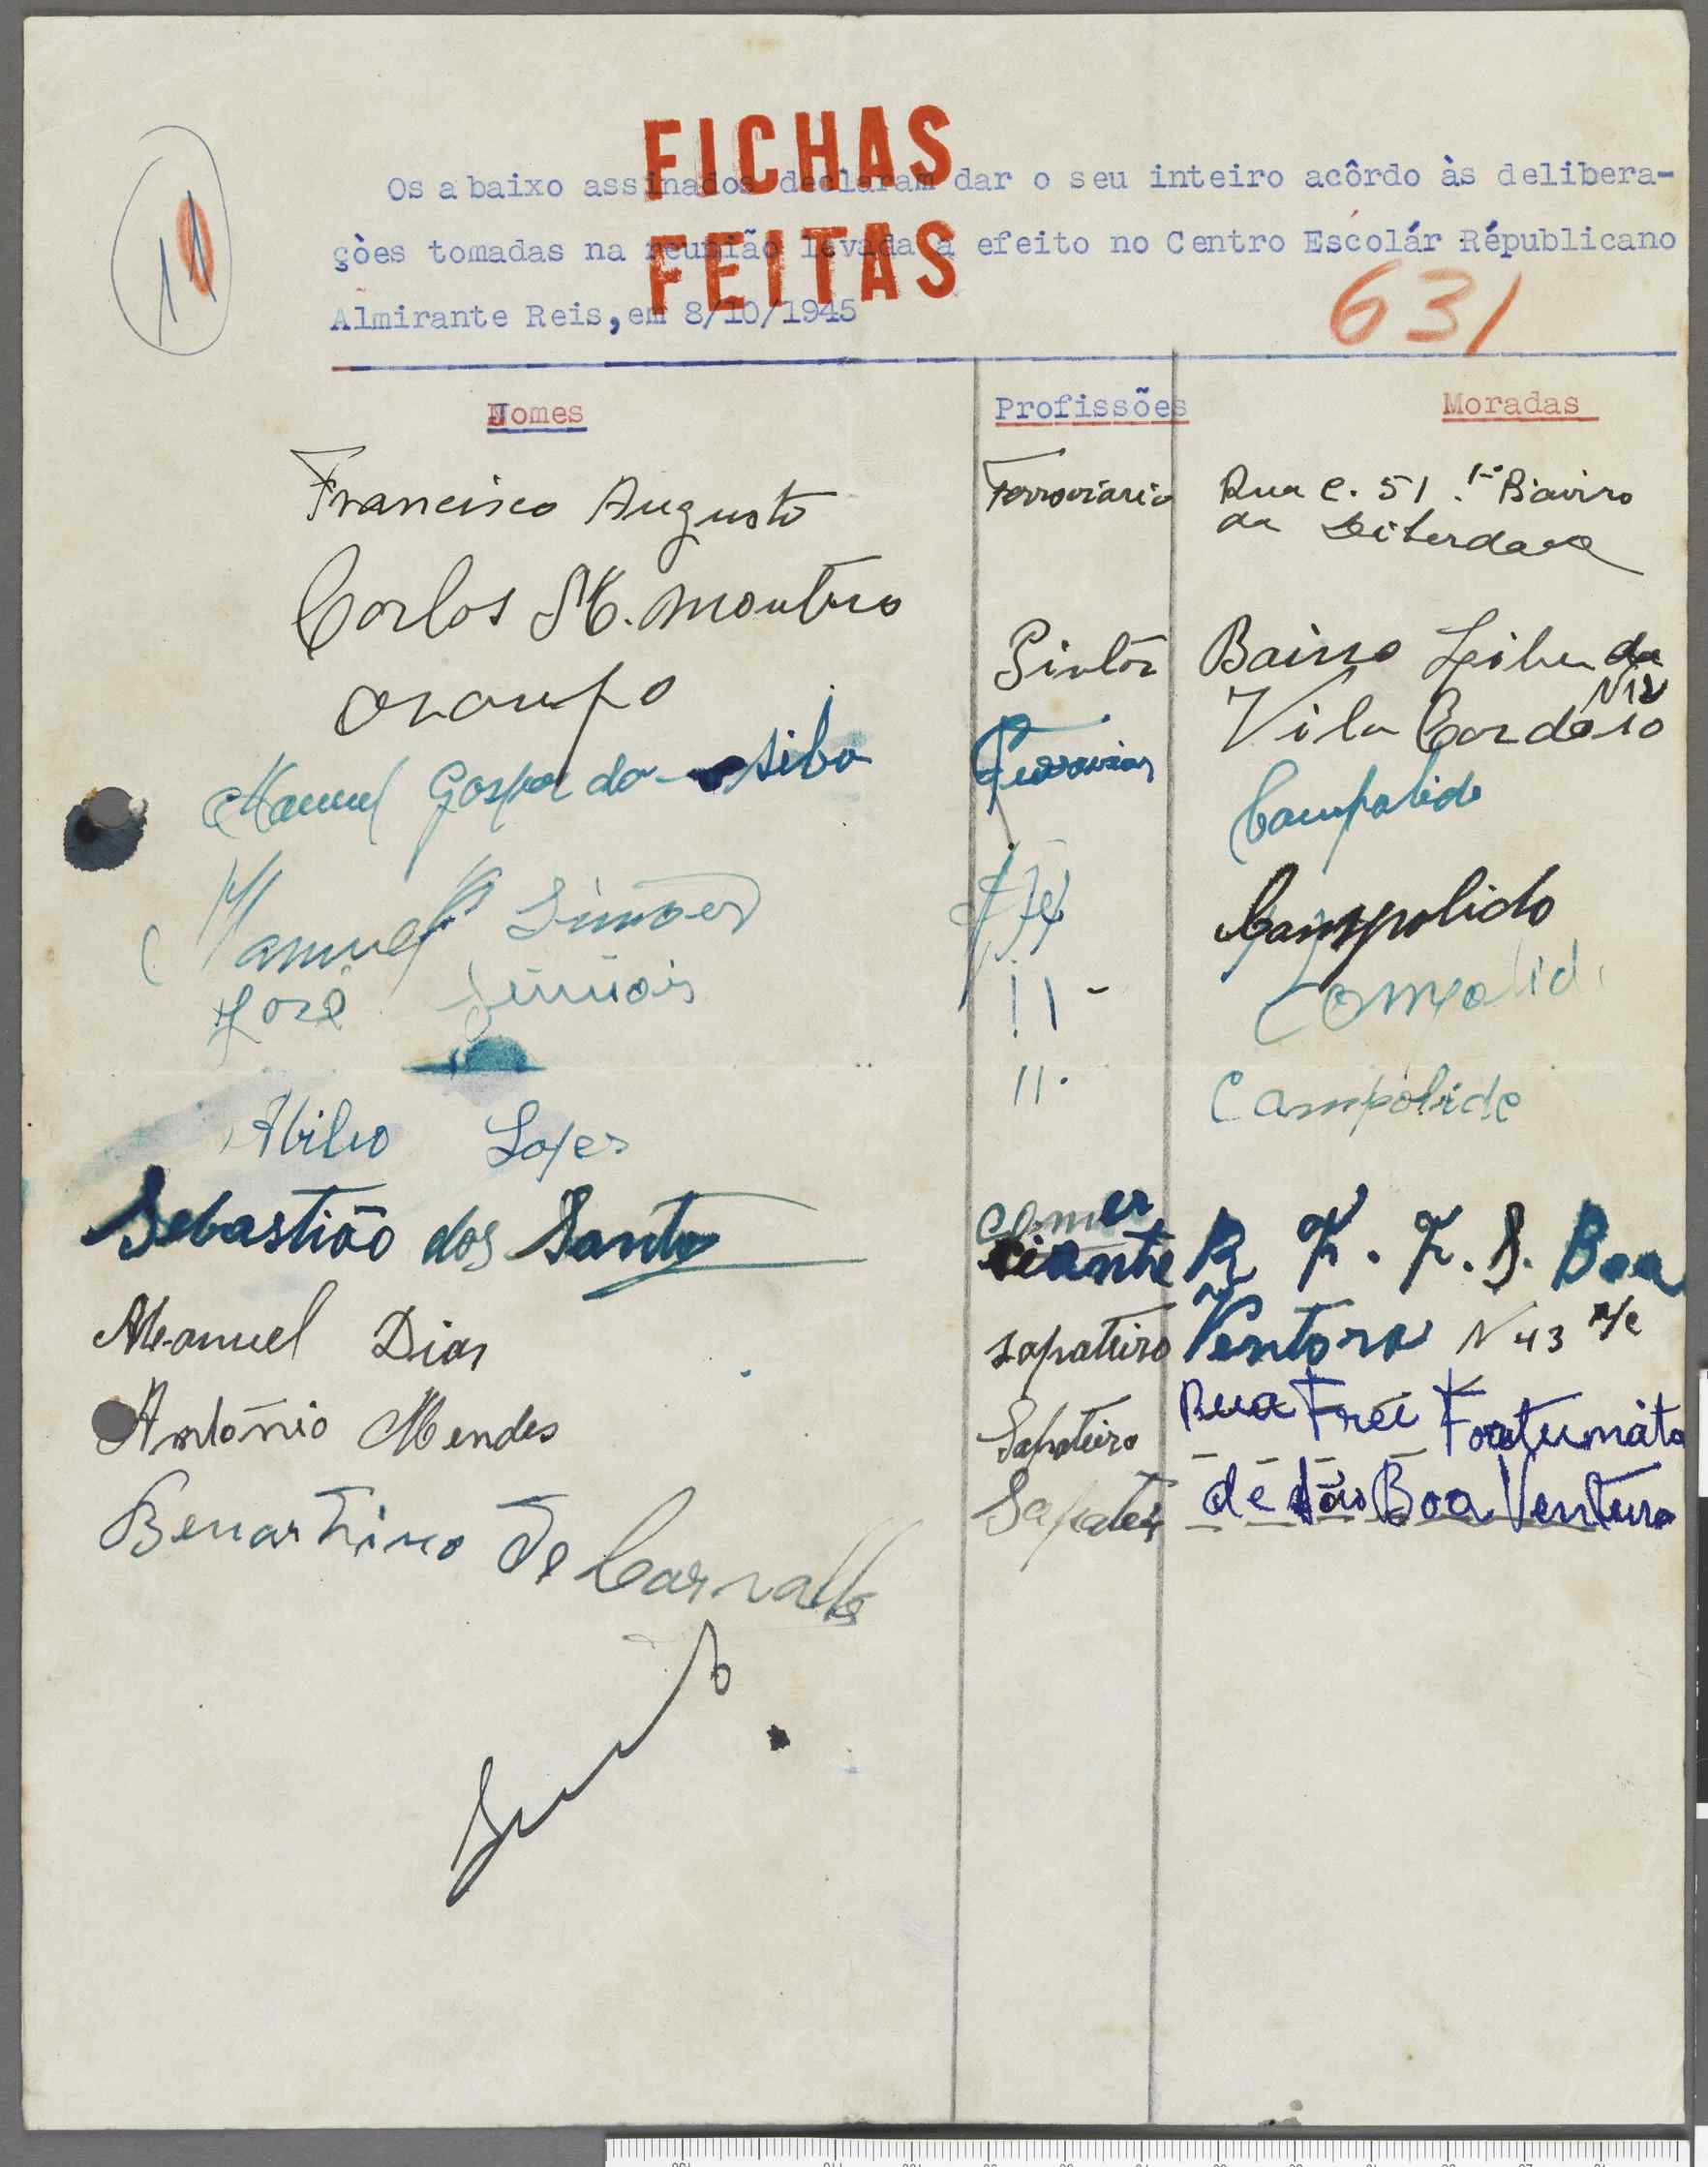 FICHAS
FEITAS
11
Os abaixo assinados declaram dar o seu inteiro acôrdo às delibera-
çòes tomadas na reunião levada a efeito no Centro Escolár Républicano
Almirante Reis, em 8/10/1945
631
Nomes Profissões Moradas
Francisco Augusto Ferroviario Rua C. 51 1º Bairro
da
Carlos M. Monteiro
Pintor Bairro
Nº 12
Vila Cardoso
Manuel Gaspar da Silva Campolide
Manuel Simões Campolido
José 11 - Compolid
Abilio Lopes 11. Campolide
Sebastião dos Santos comer
ciante R F. F. S. Boa
Manuel Dias sapateiro Ventora N 43 r/c
António Mendes Sapateiro Rua Frei Fortunáto
Benartino de Carvalho Sapatei de São Boa Ventura